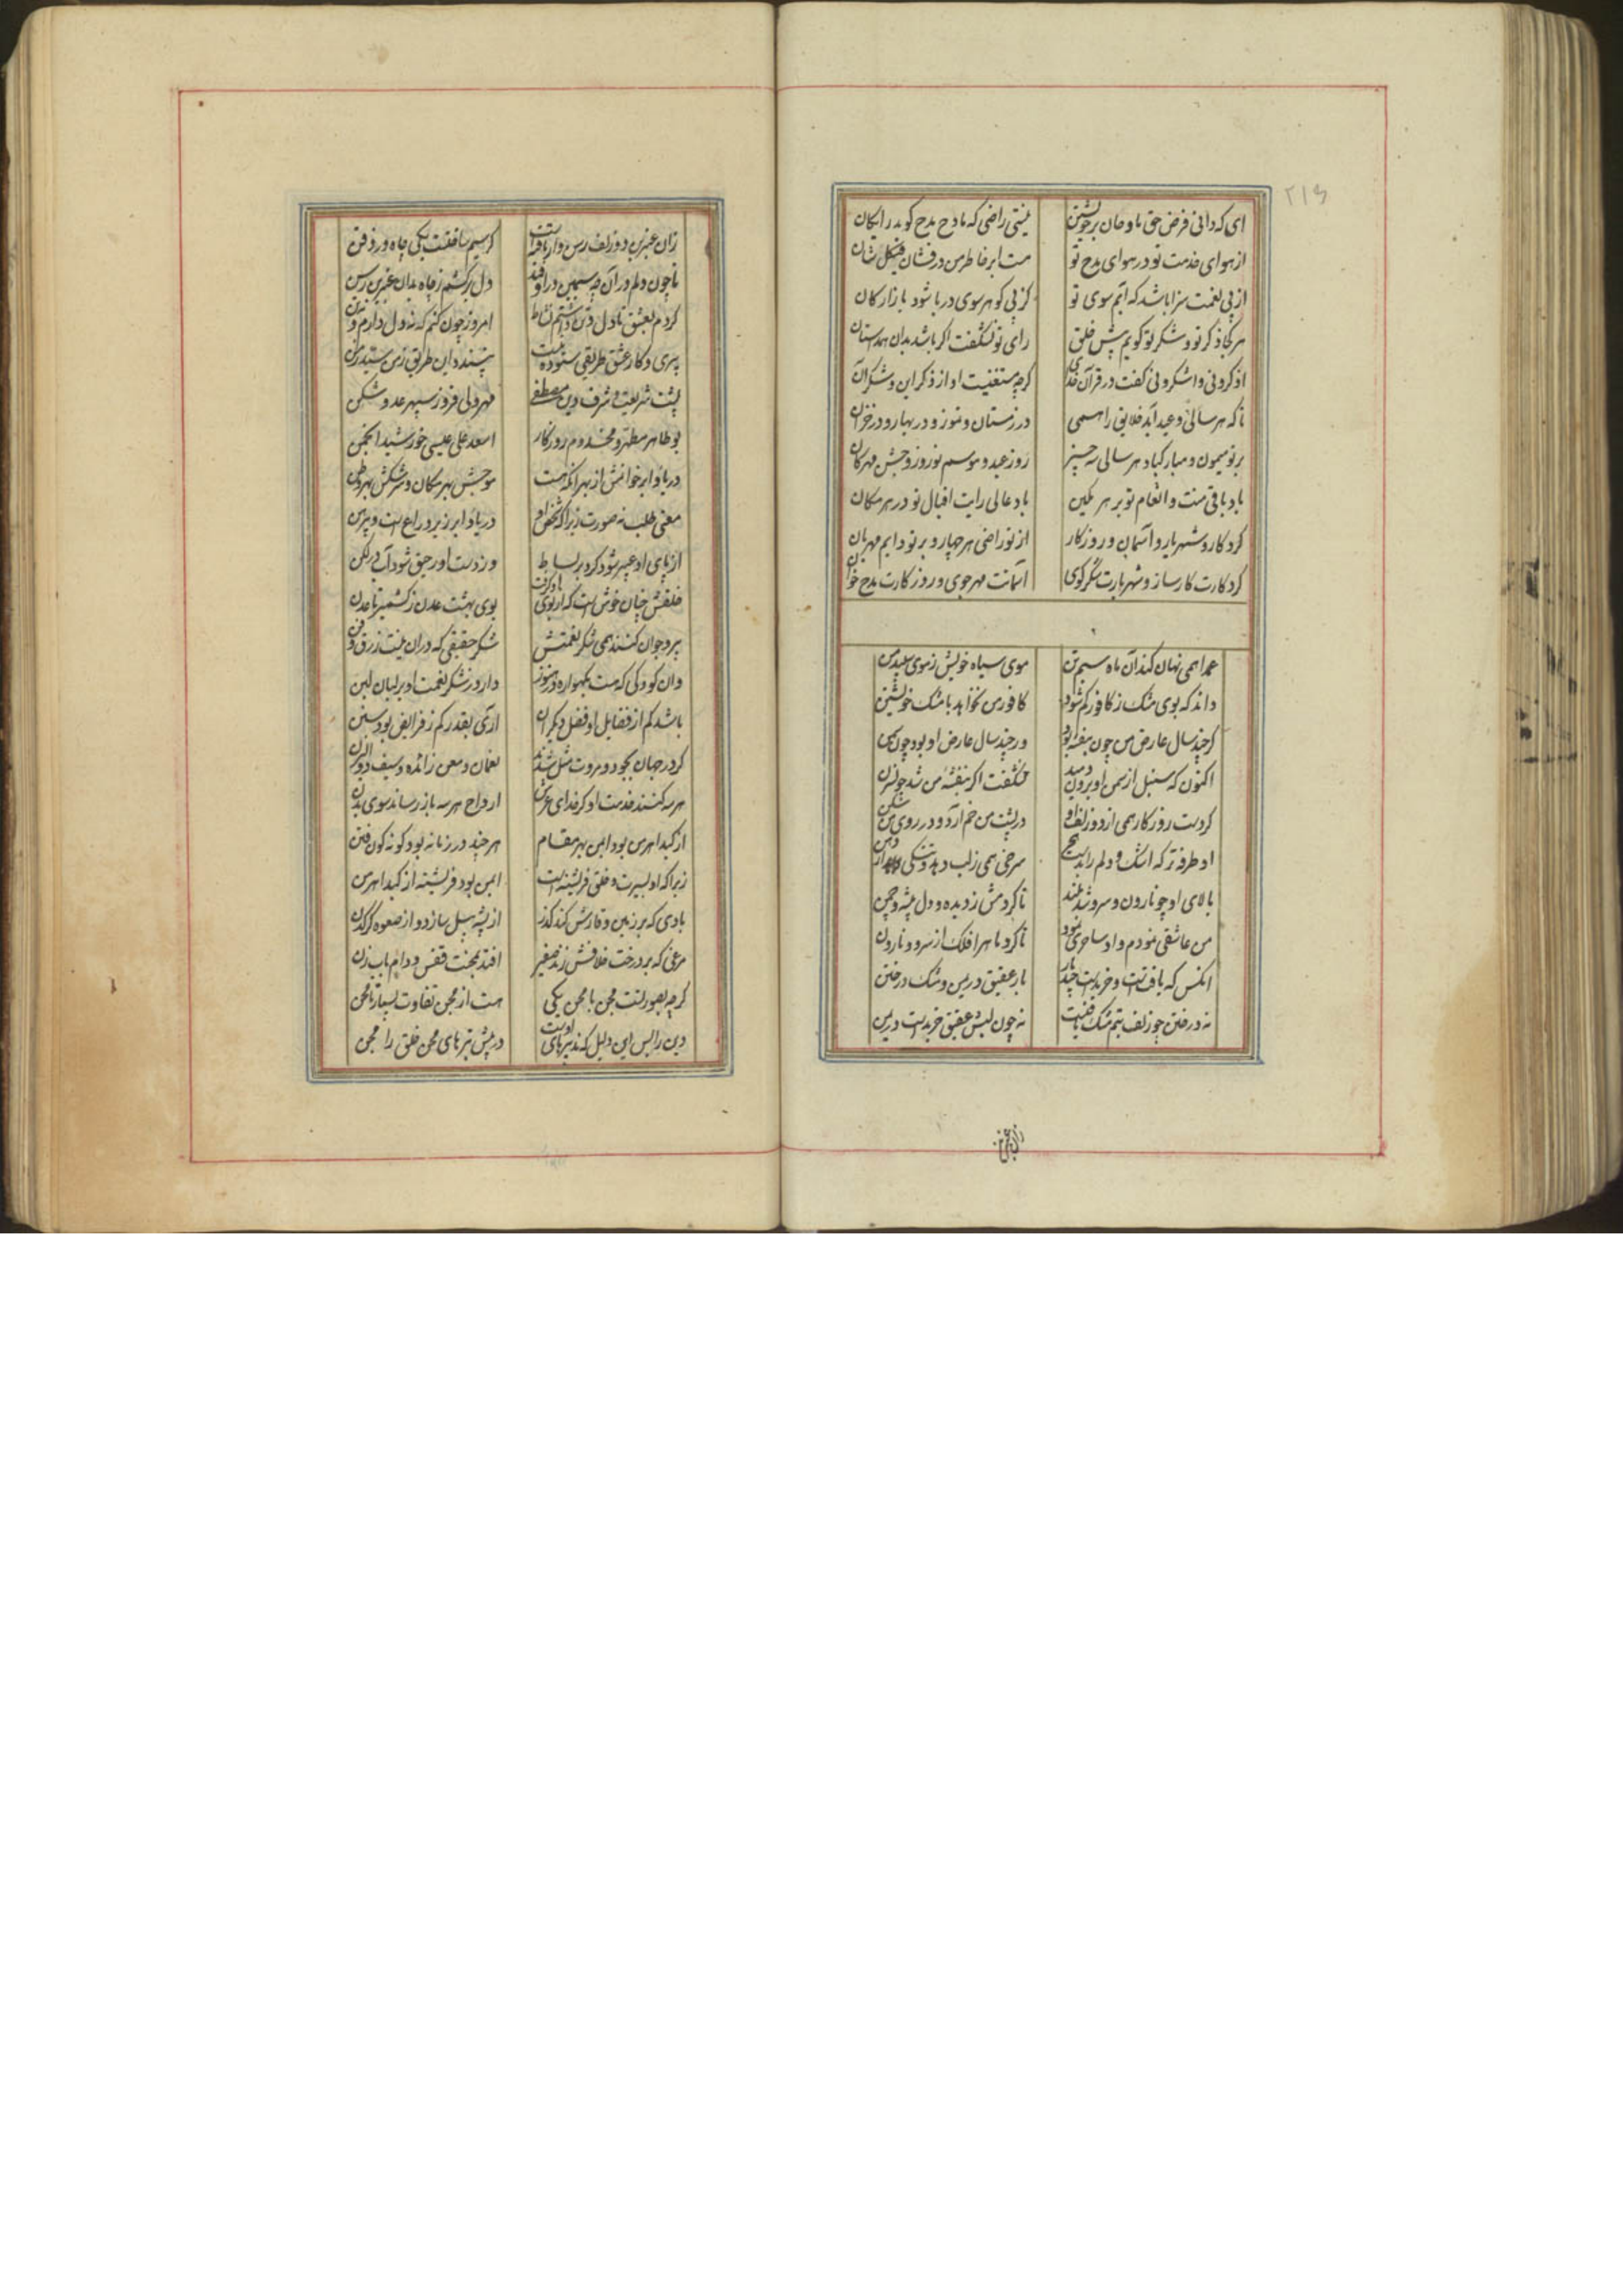 ۲۱۶
ای که دانی فرض حق مادحان بر خویشتن نیستی راضی که مادح مدح گوید رایگان
از هوای خدمت تو در هوای مدح تو هست ابر خاطر من درفشان
از پی نعمت سزا باشد که آیم سوی تو کز پی گوهر سوی دریا شود بازارگان
هر کجا ذکر تو و شکر تو گویم پیش خلق رای تو نشگفت اگر باشد بدان همداستان
اذکرونی واشکرونی گفت در قرآن خدای گرچه مستغنیست او از ذکر این و شکر آن
تا که هر سالی دو عید آید خلایق را همی در زمستان و تموز و در بهار و در خزان
بر تو میمون و مبارک باد هر سالی سه چیز روز عید و موسم نوروز و جشن مهرگان
باد باقی منت و انعام تو بر هر مکین باد عالی رایت اقبال تو در هر مکان
کردگار و شهریار و آسمان و روزگار از تو راضی هر چهار و بر تو دایم مهربان
کردگارت کارساز و شهریارت شکرگوی آسمانت مهرجوی و روزگارت مدح خوان
عمدا همی نهان کند آن ماه سیم تن موی سیاه خویش ز موی سپید من
داند که بوی مشک ز کافور کم شود کافور من نخواهد با مشک خویشتن
گر چند سال عارض من چون بنفشه بود ور چند سال عارض او بود چون سمن
اکنون که سنبل از سمن او برون دمید نشگفت اگر بنفشه من شد چو نسترن
کردست روزگار همی از دو زلف او در پشت من خم آرد و در روی من شکن
او طرفه تر که اشک و دلم را به سرخی همی ز لب دهد و تنگی از دهن
بالای او چو نارون و سرو شد بلند تا کردمش ز دیده و دل پیشه و چمن
من عاشقی نمودم و او ساحری نمود تا کرد ماهرا فلک از سرو و نارون
آنکس که یافتست و خریدست چند بار بار عقیق در یمن و مشک در ختن
نه در ختن چو زلف بتم مشک یافتست نه چون لبش عقیق خریدست در یمن
زان عنبرین
زان عنبرین دو زلف رسن وار یافته است گر سیم یافتست یکی چاه در ذقن
تا چون دلم در آن چه سیمین در اوفتد دل برکشم ز چاه بدان عنبرین رسن
کردم به عشق تا دل و تن داشتم نشاط امروز چون کنم که نه دل دارم و نه تن
پیری و کار عشق طریقی ستوده نیست نپسندد این طریق ز من سید زمن
پشت شریعت و شرف دین مصطفی فهرولی فروز سپهر عدو شکن
بوطاهر مطهر و مخدوم روزگار اسعد علی عیسی خورشید انجمن
دریا و ابر خوانمش از بهر آنکه هست موجش بهر مکان و سرشکش بهر وطن
معنی طلب نه صورت زیرا که شخص او دریا و ابر زیر دراع است و پیرهن
از پای او عبیر شود گرد بر بساط وز دست او رحیق شود آب در لگن
خلقش چنان خوش است که از بوی او گرفت بوی بهشت عدن ز کشمیر تا عدن
پیر و جوان کنند همی شکر نعمتش شکر حقیقی که در آن نیست زرق و فن
وان کودکی که هست به گهواره در هنوز دارد ز شکر نعمت او بر لبان لبن
باشد کم از فضایل او فضل دیگران آری بقدر کم ز فرایض بود سنن
گر در جهان بجود و مروت مثل شدند نعمان و معن زائده و سیف ذوالیزن
هر سه کنند خدمت او گر خدای عرش ارواح هر سه باز رساند سوی بدن
از کید اهرمن بود ایمن بهر مقام هر چند در زمانه بود گونه گون فتن
زیرا که او بسیرت و خلق فرشته است ایمن بود فرشته از کید اهرمن
بادی که بر زمین وقارش کند گذر از پشه پیل سازد و از صعوه کرگدن
مرغی که بر درخت خلافش زند صفیر افتد به محنت قفس و دام بابزن
گرچه به صورتست مجن با محن یکی هست از محن تفاوت بسیار تا مجن
دین را بس این دلیل که تدبیرهای اوست در پیش تیرهای محن خلق را مجن